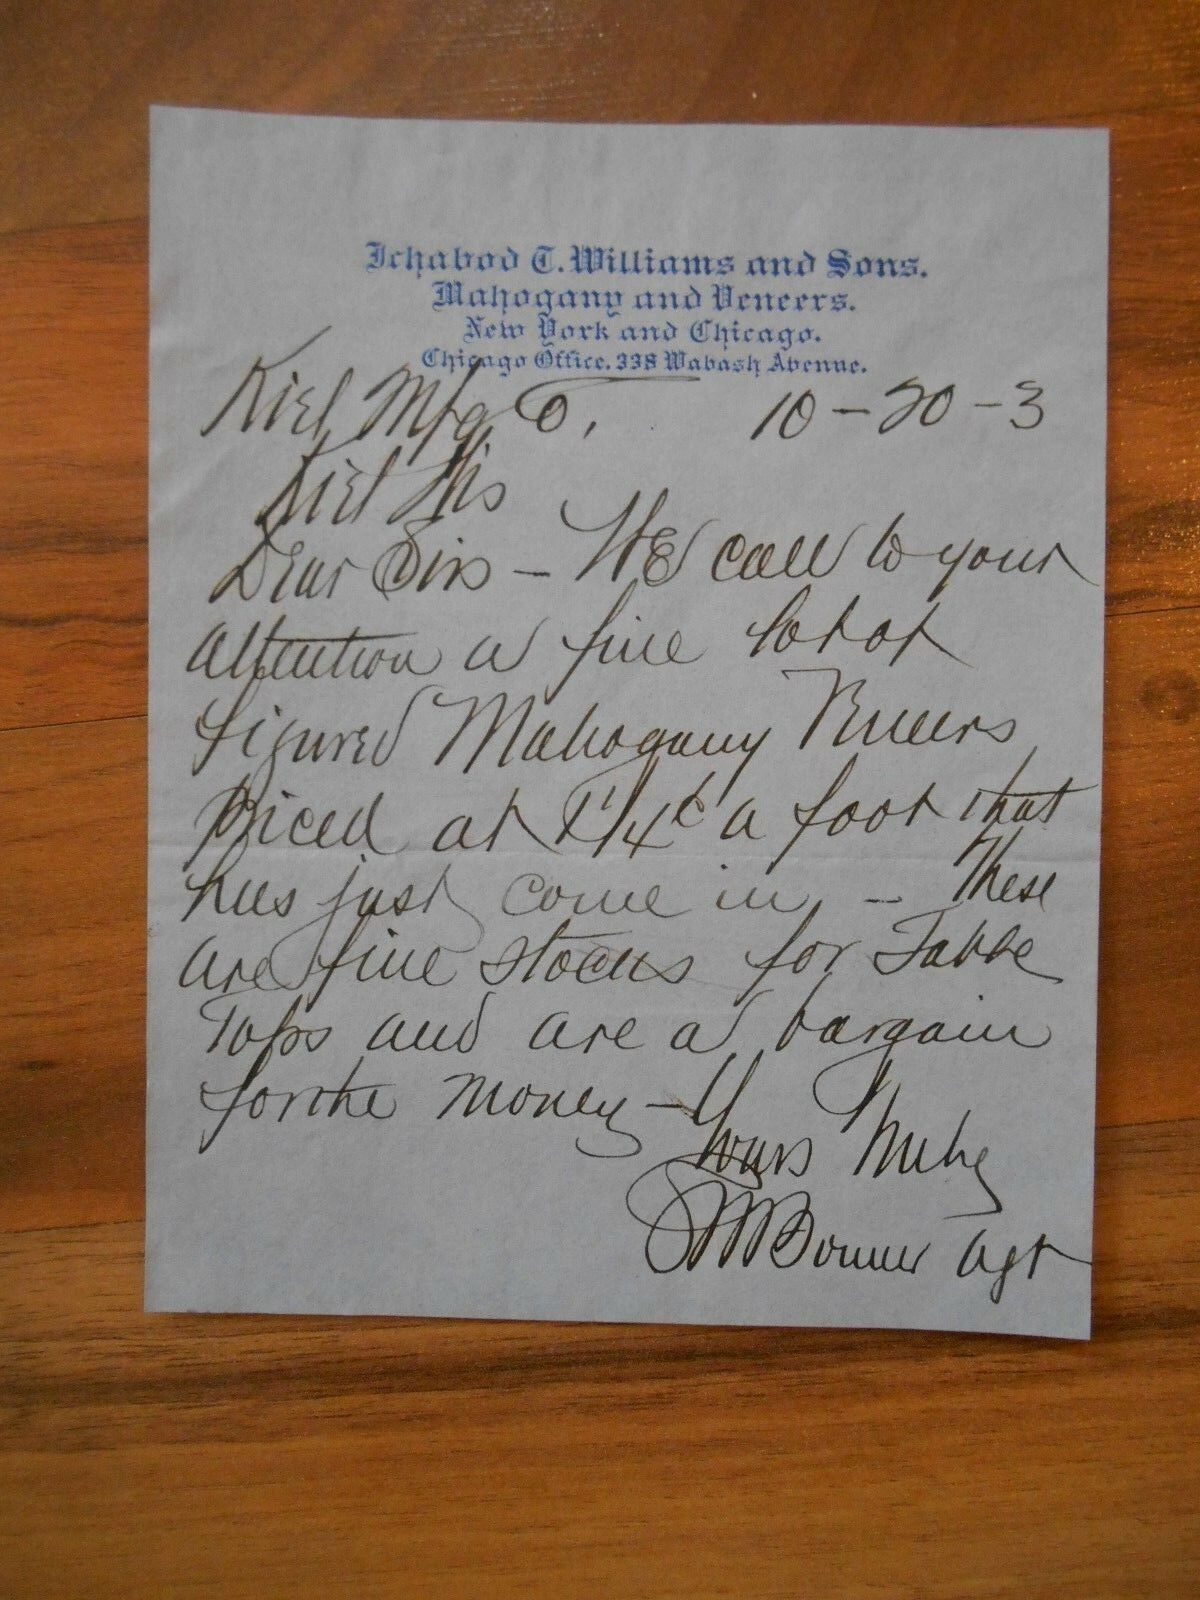 Ichabod T. Williams and Sons.
Mahogany and Veneers.
New York and Chicago.
Chicago Office. 338 Wabash Avenue.
Kiel Mfg Co, 10-20-3
Kiel Wis
Dear Sirs - We call to your
attention a fine lot of
figured Mahogany Veneers
priced at 1 1/4 c a foot that
has just come in - These
are fine stocks for Table
Tops and are a bargain
for the money - Yours Truly
Bonner Agt